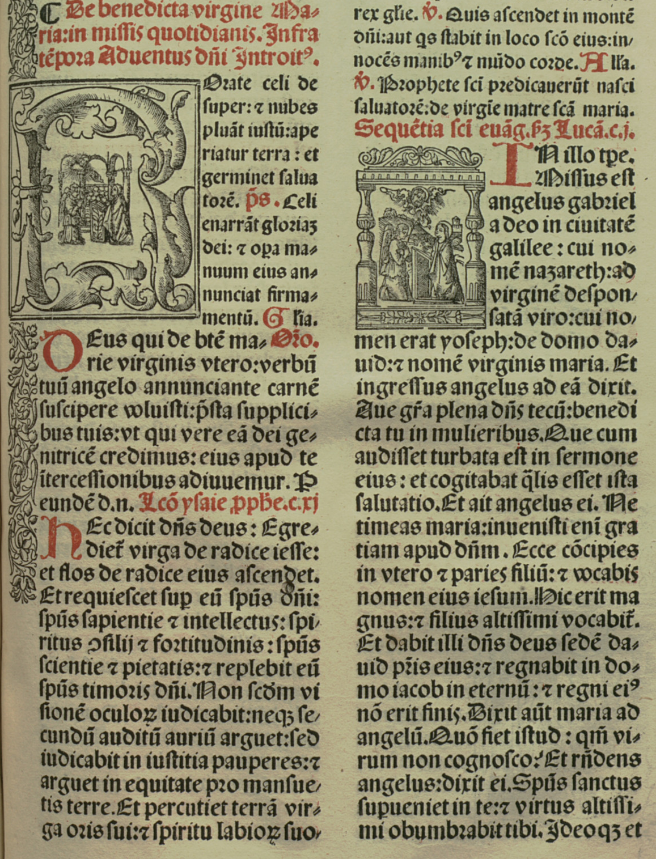 ¶ De benedicta virgine Ma⸗
ria: in missis quotidianis. Infra
tēpora Aduentus dn̄i Introitꝰ.
Rorate celi de
super: ⁊ nubes
pluāt iustū: ape
riatur terra: et
germinet salua
torē. p̄s. Celi
enarrāt gloriaꝫ
dei: ⁊ oꝑa ma⸗
nuum eius an⸗
nunciat firma⸗
mentū. Gl̄ia.
DEus qui de btē ma⸗ Oro.
rie virginis vtero: verbū
tuū angelo annunciante carnē
suscipere voluisti: p̄sta supplici⸗
bus tuis: vt qui vere eā dei ge⸗
nitricē credimus: eius apud te
ītercessionibus adiuuemur. P
eundē d.n. Lcō ysaie ꝓphe. c. xj
HEc dicit dn̄s deus: Egre⸗
dieť virga de radice iesse:
et flos de radice eius ascendet.
Et requiescet suꝑ eū spūs dn̄i:
spūs sapientie ⁊ intellectus: spi⸗
ritus ↄsilij ⁊ fortitudinis: spūs
scientie ⁊ pietatis: ⁊ replebit eū
spūs timoris dn̄i. Non scd̄m vi
sionē oculoꝝ iudicabit: neqꝫ se⸗
cundū auditū auriū arguet: sed
iudicabit in iustitia pauperes: ⁊
arguet in equitate pro mansue⸗
tis terre. Et percutiet terrā vir⸗
ga oris sui: ⁊ spiritu labioꝝ suo⸗
rex gl̄ie. ℣. Quis ascendet in montē
dn̄i: aut qs stabit in loco scō eius: in⸗
nocēs manibꝰ ⁊ mūdo corde. Alla.
℣. Prophete sci predicauerūt nasci
saluatorē: de virgīe matre scā maria.
Sequētia sci euāg. ẜꝫ Lucā. c. j.
IN illo tp̄e.
Missus est
angelus gabriel
a deo in ciuitatē
galilee: cui no⸗
mē nazareth: ad
virginē despon⸗
satā viro: cui no⸗
men erat yoseph: de domo da⸗
uid: ⁊ nomē virginis maria. Et
ingressus angelus ad eā dixit.
Aue gr̄a plena dn̄s tecū: benedi
cta tu in mulieribus. Que cum
audisset turbata est in sermone
eius: et cogitabat q̄lis esset ista
salutatio. Et ait angelus ei. Ne
timeas maria: inuenisti enī gra
tiam apud dn̄m. Ecce cōcipies
in vtero ⁊ paries filiū: ⁊ vocabis
nomen eius iesum. Hic erit ma
gnus: ⁊ filius altissimi vocabiť.
Et dabit illi dn̄s deus sedē da⸗
uid pr̄is eius: ⁊ regnabit in do⸗
mo iacob in eternū: ⁊ regni eiꝰ
nō erit finis. Dixit aūt maria ad
angelū. Quō fiet istud: qm̄ vi⸗
rum non cognosco? Et rn̄dens
angelus: dixit ei. Spūs sanctus
supueniet in te: ⁊ virtus altissi⸗
mi obumbrabit tibi. Ideoqꝫ et